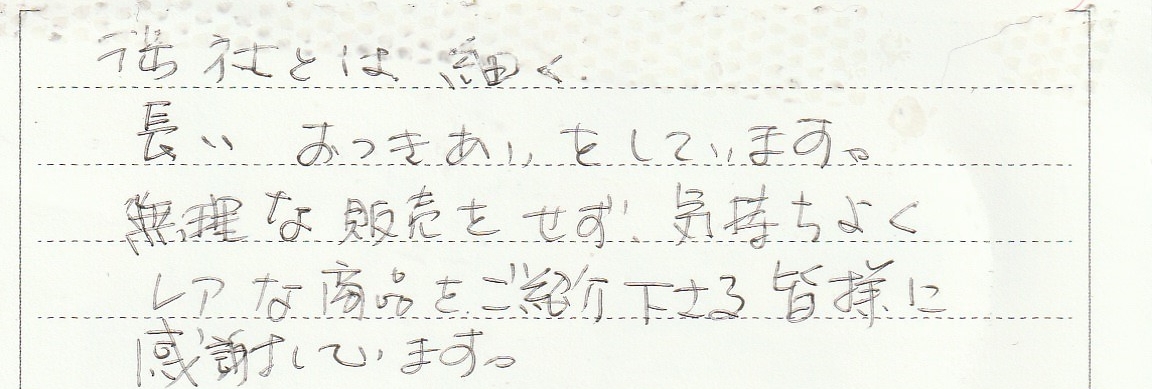 御社とは 細く.
長い おつきあいをしています。
無理な販売をせず、気持ちよく
レアな商品をご紹介下さる皆様に
感謝しています。